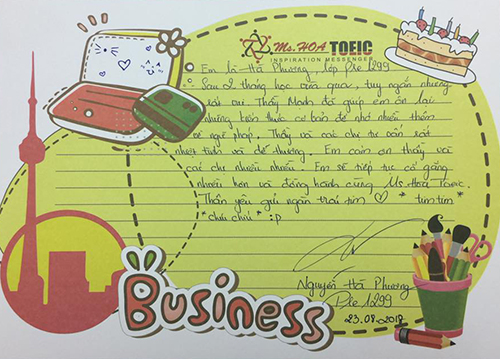 Ms. HOA TOEIC
INSPIRATION MESSENGER
Em là Hà Phương, lớp Pre 1299
Sau 2 tháng học vừa qua, tuy ngắn nhưng
rất vui. Thầy Mạnh đã giúp em ôn lại
những kiến thức cơ bản để nhớ nhiều thêm
về ngữ pháp. Thầy và các chị tư vấn rất
nhiệt tình và dễ thương. Em cảm ơn thầy và
các chị nhiều nhiều. Em sẽ tiếp tục cố gắng
nhiều hơn và đồng hành cùng Ms. Hoa Toeic.
Thân yêu gửi ngàn trái tim ♡ * tim tim
* chíu chíu * :p
Nguyễn Hà Phương
Pre 1299
23.08.2018
Business